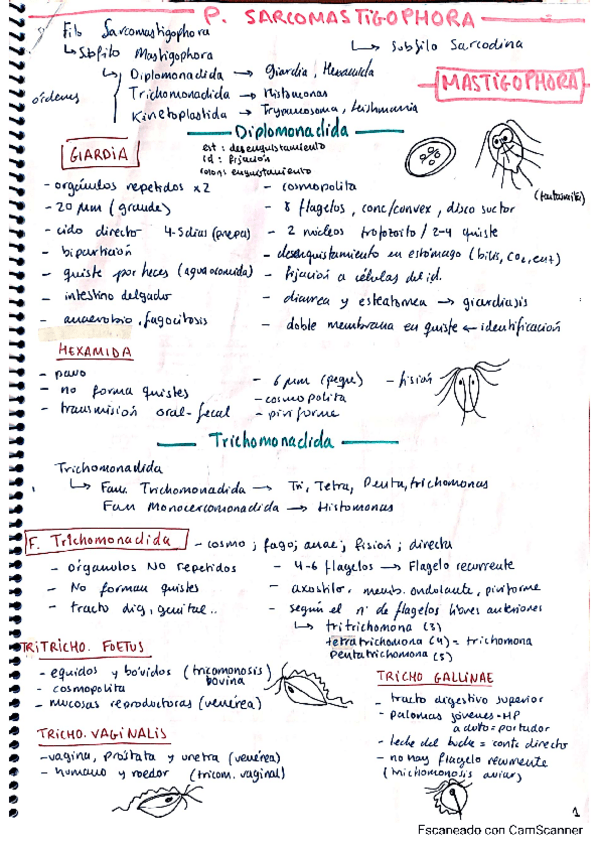 P. SARCOMASTIGOPHORA
Filo Sarcomastigophora
↳ Sbfilo Mastigophora
↳ Subfilo Sarcodina
MASTIGOPHORA
órdenes
↳ Diplomonadida → Giardia, Hexamida
Trichomonadida → Histomonas
Kinetoplastida → Trypanosoma, Leishmania
Diplomonadida
GIARDIA
est: desenquistamiento
id: fijación
colon: enquistamiento
(fantasmita)
- orgánulos repetidos x2
- 20 µm (grande)
- ciclo directo 4-5 días (prepa)
- bipartición
- quiste por heces (agua o comida)
- intestino delgado
- anaerobio, fagocitosis
- cosmopolita
- 8 flagelos, conc/convex, disco suctor
- 2 núcleos trofozoito / 2-4 quiste
- desenquistamiento en estómago (bilis, CO2, enz)
- fijación a células del id.
- diarrea y esteatorrea → giardiasis
- doble membrana en quiste ← identificación
HEXAMIDA
- pavo
- no forma quistes
- transmisión oral-fecal
- 6 µm (peque)
- cosmopolita
- piriforme
- fisión
Trichomonadida
Trichomonadida
↳ Fam. Trichomonadida → Tri, Tetra, Pentatrichomonas
Fam Monocercomonadida → Histomonas
F. Trichomonadida - cosmo; fago; anae; fisión; directa
- órganulos NO repetidos
- No forman quistes
- tracto dig, genital..
- 4-6 flagelos → Flagelo recurrente
- axostilo, memb. ondulante, piriforme
- según el nº de flagelos libres anteriores
↳ tritrichomona (3)
tetratrichomona (4) = trichomona
pentatrichomona (5)
TRITRICHO. FOETUS
- equidos y bóvidos (tricomonosis bovina)
- cosmopolita
- mucosas reproductoras (venérea)
TRICHO. VAGINALIS
- vagina, próstata y uretra (venérea)
- humano y roedor (tricom. vaginal)
TRICHO GALLINAE
- tracto digestivo superior
- palomas jóvenes = HP
adulto = portador
- leche del buche = cont directo
- no hay flagelo recurrente
(trichomonosis aviar)
1
Escaneado con CamScanner